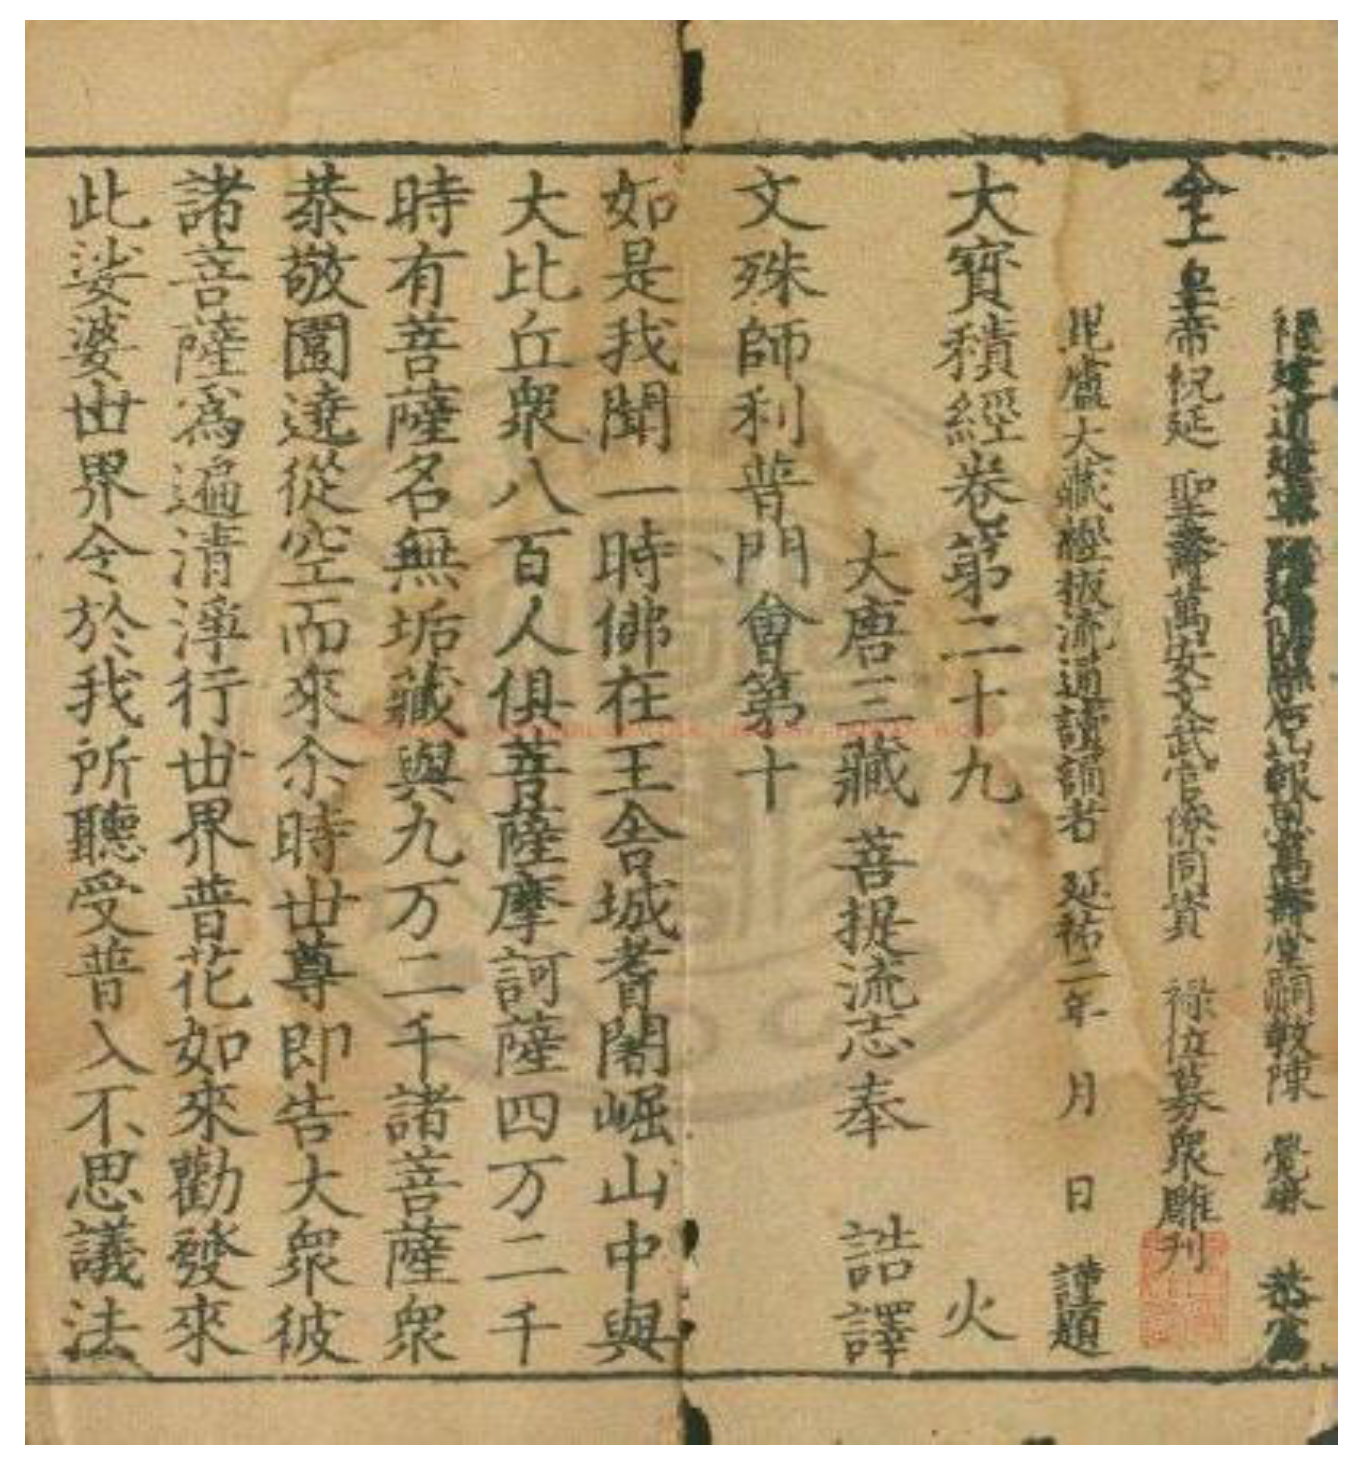 福建道建寧路建陽縣后山報恩萬壽堂嗣教陳 覺琳 恭爲
今上皇帝祝延 聖壽萬安文武官僚同資 祿位募衆雕刊
毗盧大藏經板流通讀誦者 延祐二年 月 日 謹題
大寶積經卷第二十九 火
大唐三藏菩提流志奉 詔譯
文殊師利普門會第十
如是我聞一時佛在王舍城耆闍崛山中與
大比丘衆八百人俱菩薩摩訶薩四万二千
時有菩薩名無垢藏與九万二千諸菩薩衆
恭敬圍遶從空而來尒時世尊即告大衆彼
諸菩薩爲遍清淨行世界普花如來勸發來
此娑婆世界令於我所聽受普入不思議法